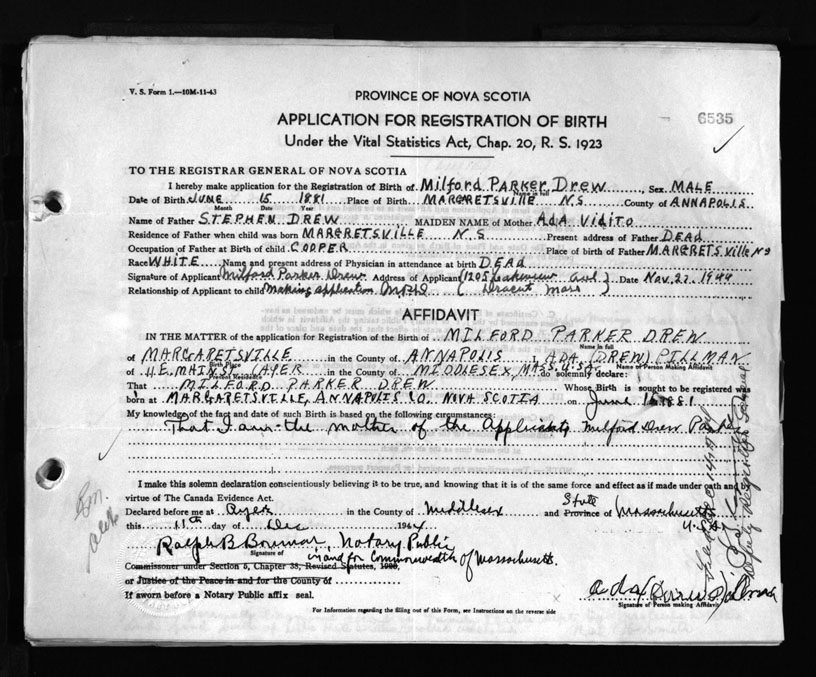 V. S. Form 1.—10M-11-43
PROVINCE OF NOVA SCOTIA
APPLICATION FOR REGISTRATION OF BIRTH
6535
Under the Vital Statistics Act, Chap. 20, R. S. 1923
TO THE REGISTRAR GENERAL OF NOVA SCOTIA
I hereby make application for the Registration of Birth of Milford PARKER DREW Sex MALE
Name in full
Date of Birth JUNE 15 1881 Place of Birth MARGRETSVILLE N.S County of ANNAPOLIS
Month Date Year
Name of Father STEPHEN DREW MAIDEN NAME of Mother ADA VIDITO
Residence of Father when child was born MARGRETSVILLE N S Present address of Father DEAD
Occupation of Father at Birth of child COOPER Place of birth of Father MARGRETSVille NS
Race WHITE Name and present address of Physician in attendance at birth DEAD
Signature of Applicant Milford Parker Drew Address of Applicant (1205 Lakeview ave) Date Nov. 27, 1944
Relationship of Applicant to child making application (Dracut mass
AFFIDAVIT
IN THE MATTER of the application for Registration of the Birth of MILFORD PARKER DREW
Name in full
of MARGARETSVILLE in the County of ANNAPOLIS I, ADA (DREW) PILLMAN
Birth Place Name of Person Making Affidavit
of 11 E. MAIN ST. AYER in the County of MIDDLESEX, MASS. U.S.A. do solemnly declare:
That MILFORD PARKER DREW Whose Birth is sought to be registered was
born at MARGARETSVILLE, ANNAPOLIS CO. NOVA SCOTIA on June 1881
My knowledge of the fact and date of such Birth is based on the following circumstances:
That I am the mother of the Applicant, Milford Drew Parker
I make this solemn declaration conscientiously believing it to be true, and knowing that it is of the same force and effect as if made under oath and
virtue of The Canada Evidence Act.
Declared before me at Ayer in the County of Middlesex State and Province of Massachusetts
this 11th day of Dec 1944 U.S.A.
Ralph B Bowmar, Notary Public
Signature of
in and for Commonwealth of Massachusetts.
Commissioner under Section 5, Chapter 38, Revised Statutes,
or Justice of the Peace in and for the County of
If sworn before a Notary Public affix seal.
Ada (Drew)
Signature of Person making Affidavit
For Information regarding the filling out of this Form, see Instructions on the reverse side